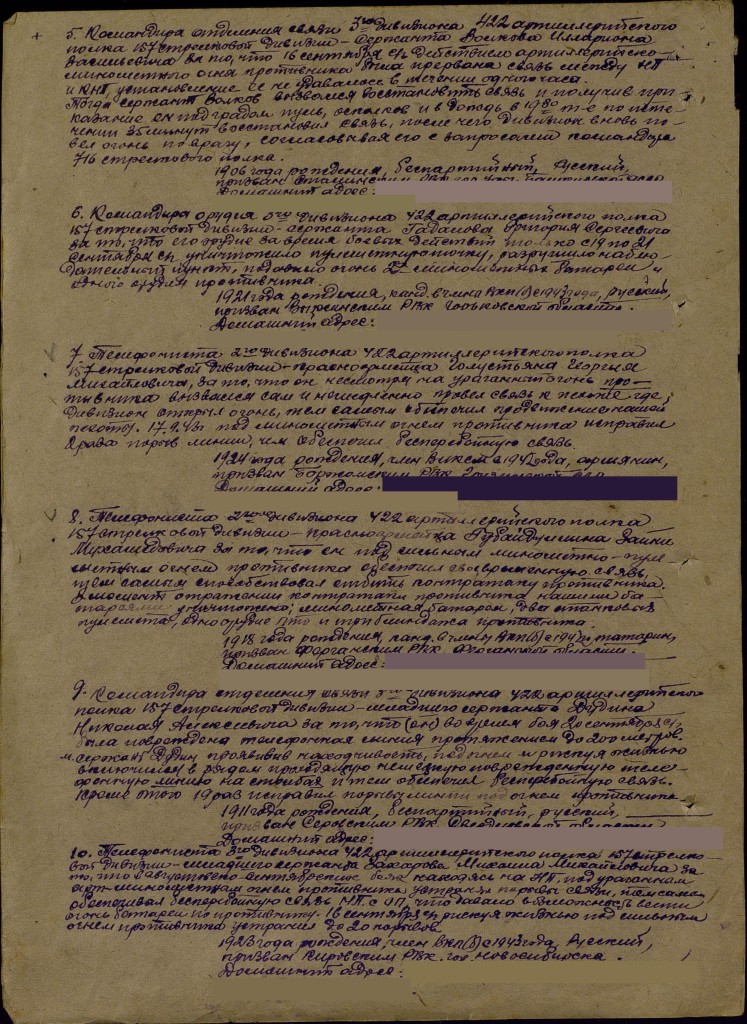 5. Командира отделения связи 3го дивизиона 422 артиллерийского
полка 157 стрелковой дивизии - сержанта Волкова Иллариона
Васильевича за то, что 16 сентября с/г действием артиллерийско-
миномётного огня противника была прервана связь между НП
и КНП, установление её не давалось в течении одного часа.
Тогда сержант Волков вызвался восстановить связь и получив при-
казание он под градом пуль, осколков и в дождь в
чении 35 минут восстановил связь, после чего дивизион вновь по-
вел огонь по врагу, согласовывая его с запросами командира
716 стрелкового полка.
1906 года рождения, беспартийный, русский,
призван РВК
Домашний адрес:
6. Командира орудия 3го дивизиона 422 артиллерийского полка
157 стрелковой дивизии - сержанта Григория Сергеевича
за то, что его орудие за время боевых действий только с 19 по 21
сентября с/г уничтожило пулеметную точку, разрушило наблю-
дательный пункт, подавило огонь 2х миномётных батарей и
одного орудия противника.
1921 года рождения, канд. в члены ВКП(б) с 1943 года, русский,
призван Выксинским РВК Горьковской области.
Домашний адрес:
7. Телефониста 2го дивизиона 422 артиллерийского полка
157 стрелковой дивизии - красноармейца Голустьяна Георгия
Михайловича, за то, что он несмотря на ураганный огонь про-
тивника вызвался сам и немедленно провел связь к пехоте где,
дивизион открыл огонь, тем самым обеспечил продвижение нашей
пехоты. 17.9.43г. под миномётным огнем противника исправил
4 раза порыв линии, чем обеспечил бесперебойную связь.
1924 года рождения, член ВЛКСМ с 1942 года, армянин,
призван Боржомским РВК Грузинской ССР
Домашний адрес:
8. Телефониста 2го дивизиона 422 артиллерийского полка
157 стрелковой дивизии - красноармейца Губайдулина
Мухамедовича за то, что он под сильным миномётно-пуле-
мётным огнем противника обеспечил своевременную связь,
тем самым способствовал отбить контратаку противника.
В момент отражения контратаки противника нашими ба-
тареями уничтожено; миномётная батарея, два станковых
пулемета, одно орудие ПТО и противника.
1918 года рождения, канд. в члены ВКП(б) с 1943г, татарин,
призван Ферганским РВК Ферганской области.
Домашний адрес:
9. Командира отделения связи 3го дивизиона 422 артиллерийского
полка 157 стрелковой дивизии - младшего сержанта Дудина
Николая Алексеевича за то, что (он) во время боя 20 сентября с/г
была повреждена телефонная линия протяжением до 200 метров.
м. сержант Дудин проявивив находчивость, под огнем и рискуя жизнью
включился в рядом проходящую немецкую поврежденную теле-
фонную линию на столбах и тем обеспечил бесперебойную связь.
Кроме этого 19 раз исправил порывы линии под огнем противника.
1911 года рождения, беспартийный, русский,
призван Серовским РВК Свердловской области
Домашний адрес:
10. Телефониста 3го дивизиона 422 артиллерийского полка 157 стрелко-
вой дивизии - младшего сержанта Захарова Михаила Михайловича за
то, что в августовско-сентябрьских боях находясь на НП, под ураганным
арт-миномётным огнем противника устранял порывы связи, тем самым
обеспечивал бесперебойную связь НП с ОП, что давало возможность вести
огонь батареи по противнику. 16 сентября с/г рискуя жизнью под сильным
огнем противника устранил до 20 порывов.
1923 года рождения, член ВКП(б) с 1943 года, русский,
призван Кировским РВК гор. Новосибирска.
Домашний адрес: